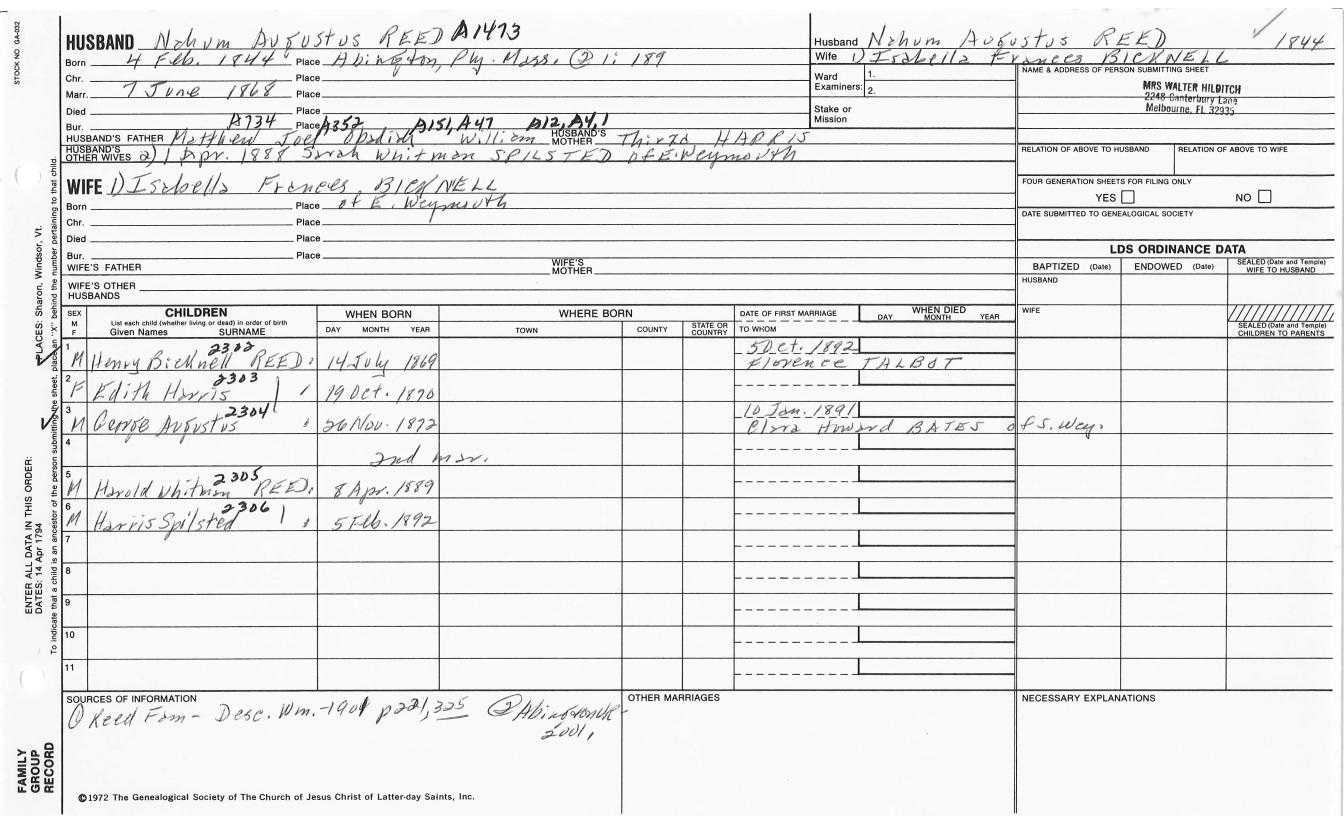 STOCK NO GA-032
HUSBAND Nahum Augustus REED A1473
Born 4 Feb. 1844 Place Abington, Ply. Mass. ② 1: 189
Chr. Place
Marr. 7 June 1868 Place
Died Place
Bur. A734 Place A352 A151, A47 A12, A4, 1
HUSBAND'S FATHER Matthew Joel Obadiah William HUSBAND'S MOTHER Thirza HARRIS
HUSBAND'S OTHER WIVES 2) 1 Apr. 1888 Sarah Whitman SPILSTED of E. Weymouth
WIFE 1) Isabella Frances BICKNELL
Born Place of E. Weymouth
Chr. Place
Died Place
Bur. Place
WIFE'S FATHER WIFE'S MOTHER
WIFE'S OTHER HUSBANDS
Husband Nahum Augustus REED ✓ 1844
Wife 1) Isabella Frances BICKNELL
Ward Examiners: 1.
2.
Stake or Mission
NAME & ADDRESS OF PERSON SUBMITTING SHEET
MRS WALTER HILDITCH
2248 Canterbury Lane
Melbourne, FL 32935
RELATION OF ABOVE TO HUSBAND RELATION OF ABOVE TO WIFE
FOUR GENERATION SHEETS FOR FILING ONLY
YES NO
DATE SUBMITTED TO GENEALOGICAL SOCIETY
LDS ORDINANCE DATA
BAPTIZED (Date) ENDOWED (Date) SEALED (Date and Temple) WIFE TO HUSBAND
HUSBAND
WIFE
SEALED (Date and Temple) CHILDREN TO PARENTS
SEX M F CHILDREN WHEN BORN WHERE BORN DATE OF FIRST MARRIAGE WHEN DIED
List each child (whether living or dead) in order of birth
Given Names SURNAME DAY MONTH YEAR TOWN COUNTY STATE OR COUNTRY TO WHOM DAY MONTH YEAR
1 M Henry Bicknell 2302 REED 14 July 1869 5 Oct. 1892
Florence TALBOT
2 F Edith Harris 2303 19 Oct. 1870
3 M George Augustus 2304 26 Nov. 1872 10 Jan. 1891
Clara Howard BATES of S. Wey.
4 2nd mar.
5 M Harold Whitman 2305 REED 8 Apr. 1889
6 M Harris Spilsted 2306 5 Feb. 1892
7
8
9
10
11
SOURCES OF INFORMATION
① Reed Fam - Desc. Wm. -1901 p221, 325 ② Abington VR-
2001,
OTHER MARRIAGES
NECESSARY EXPLANATIONS
©1972 The Genealogical Society of The Church of Jesus Christ of Latter-day Saints, Inc.
FAMILY GROUP RECORD
ENTER ALL DATA IN THIS ORDER:
DATES: 14 Apr 1794
PLACES: Sharon, Windsor, Vt.
To indicate that a child is an ancestor of the person submitting the sheet, place an "X" behind the number pertaining to that child.